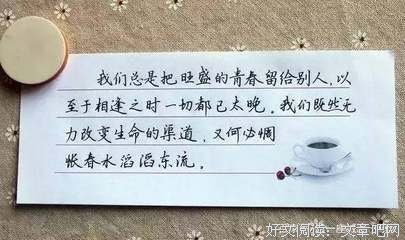 我们总是把旺盛的青春留给别人，以
至于相逢之时一切都已太晚。我们既然无
力改变生命的渠道，又何必惆
怅春水滔滔东流。
好文阅读：文章吧网